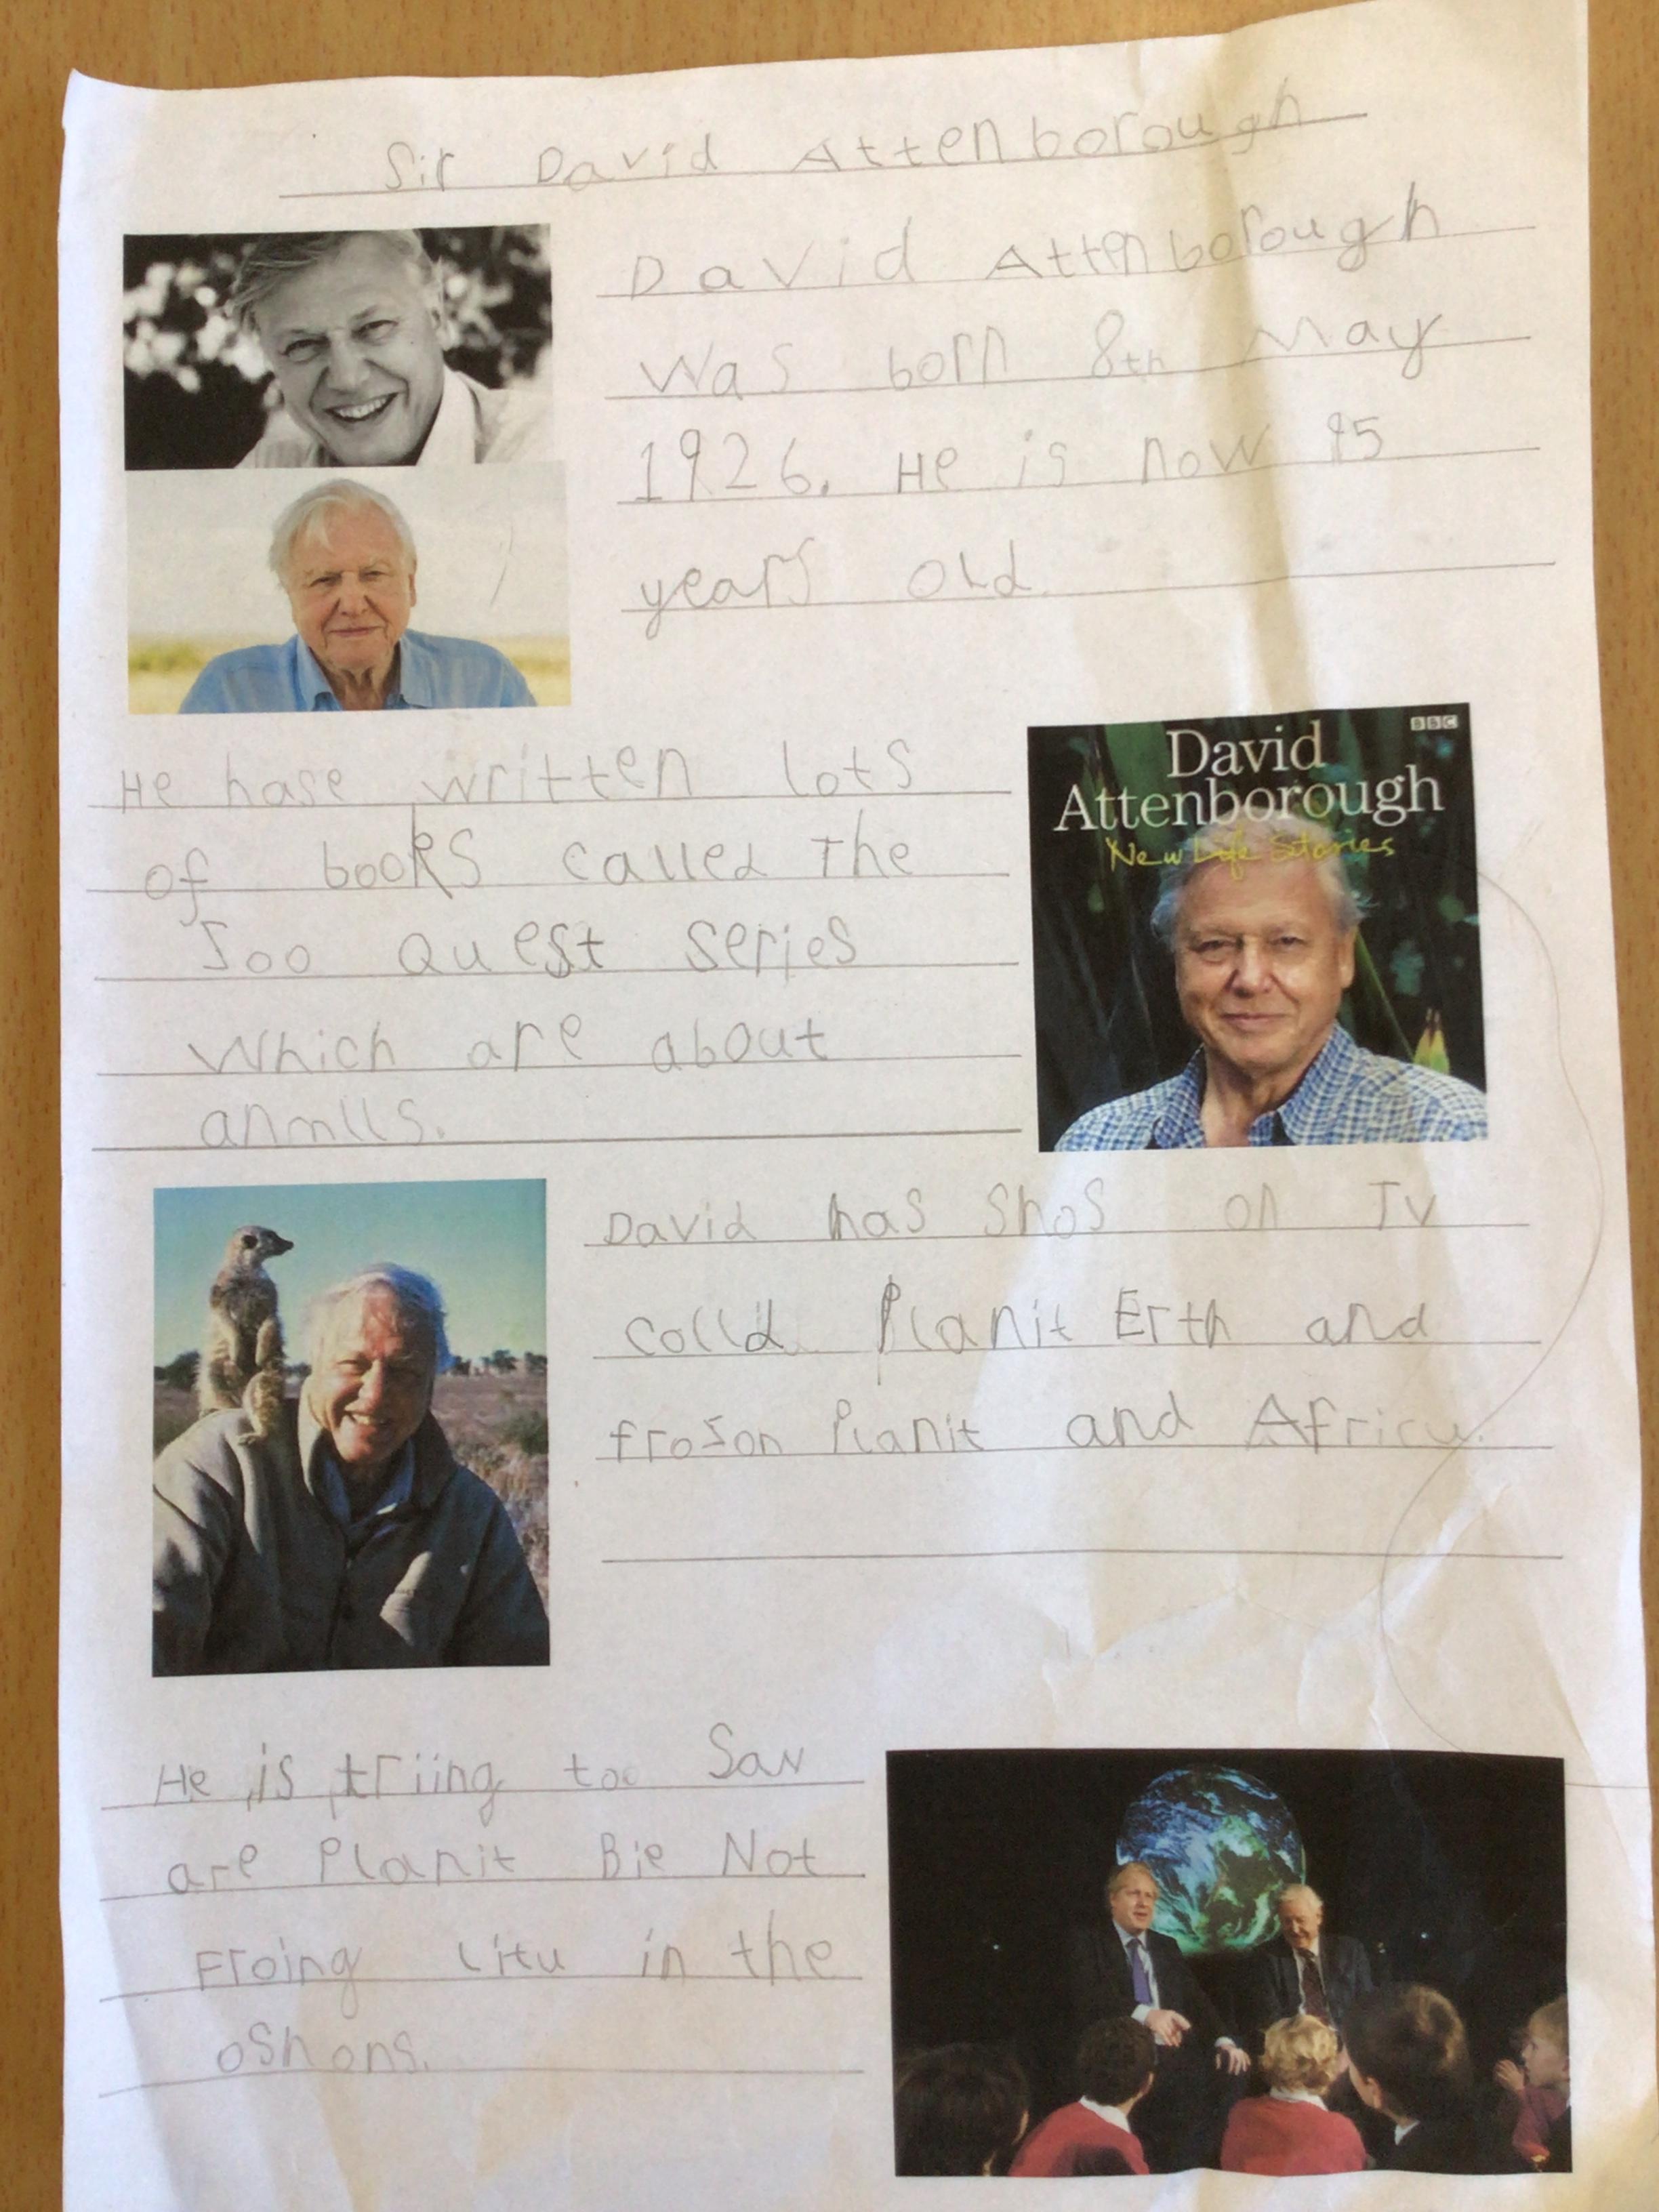 Sir David Attenborough
David Attenborough
was born 8th May
1926. He is now 95
years old.
He hase written lots
of books called The
Zoo Quest series
which are about
anmlls.
BBC
David
Attenborough
New Life Stories
David has shos on TV
colld Planit Erth and
frozon Planit and Africu.
He is triing too Sav
are Planit Bie Not
Froing litu in the
oshons.